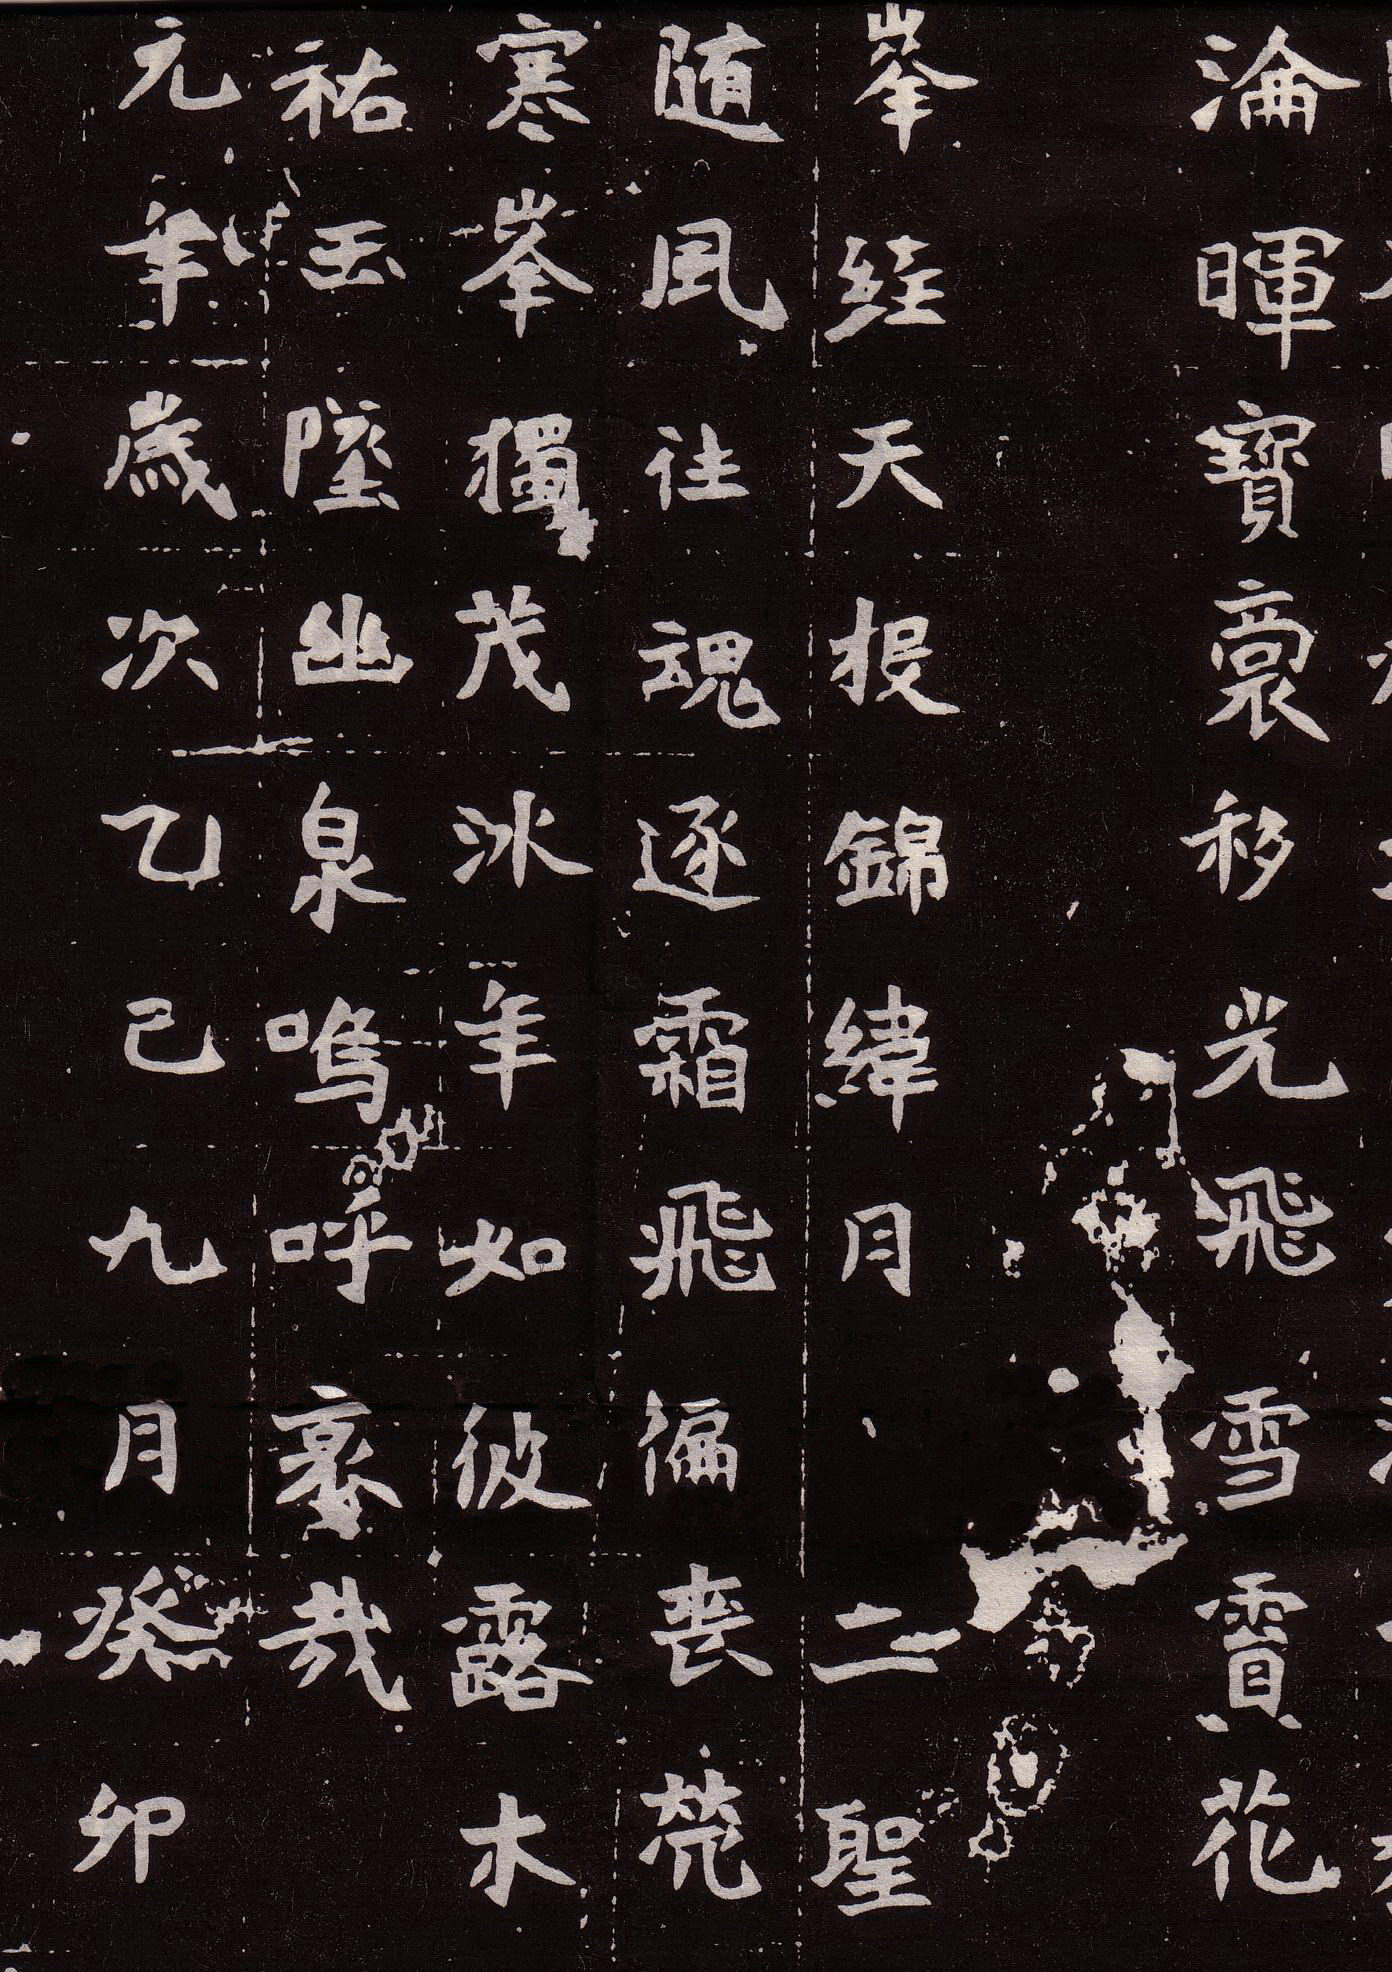 淪暉寶裹移光飛雪賣花
峯経天投錦緯月二聖
随風往魂逐霜飛偏喪茕
寒峯獨茂冰年如彼露木
祐玉墜幽泉嗚呼哀哉
元年歲次乙己九月癸卯